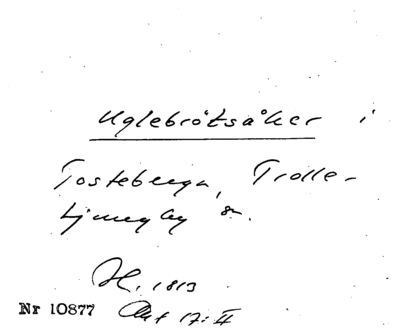 Uglebrötsåker i
Tosteberga, Trolle-
Ljungby sn.
H. 1813
Nr 10877 Akt 17: II